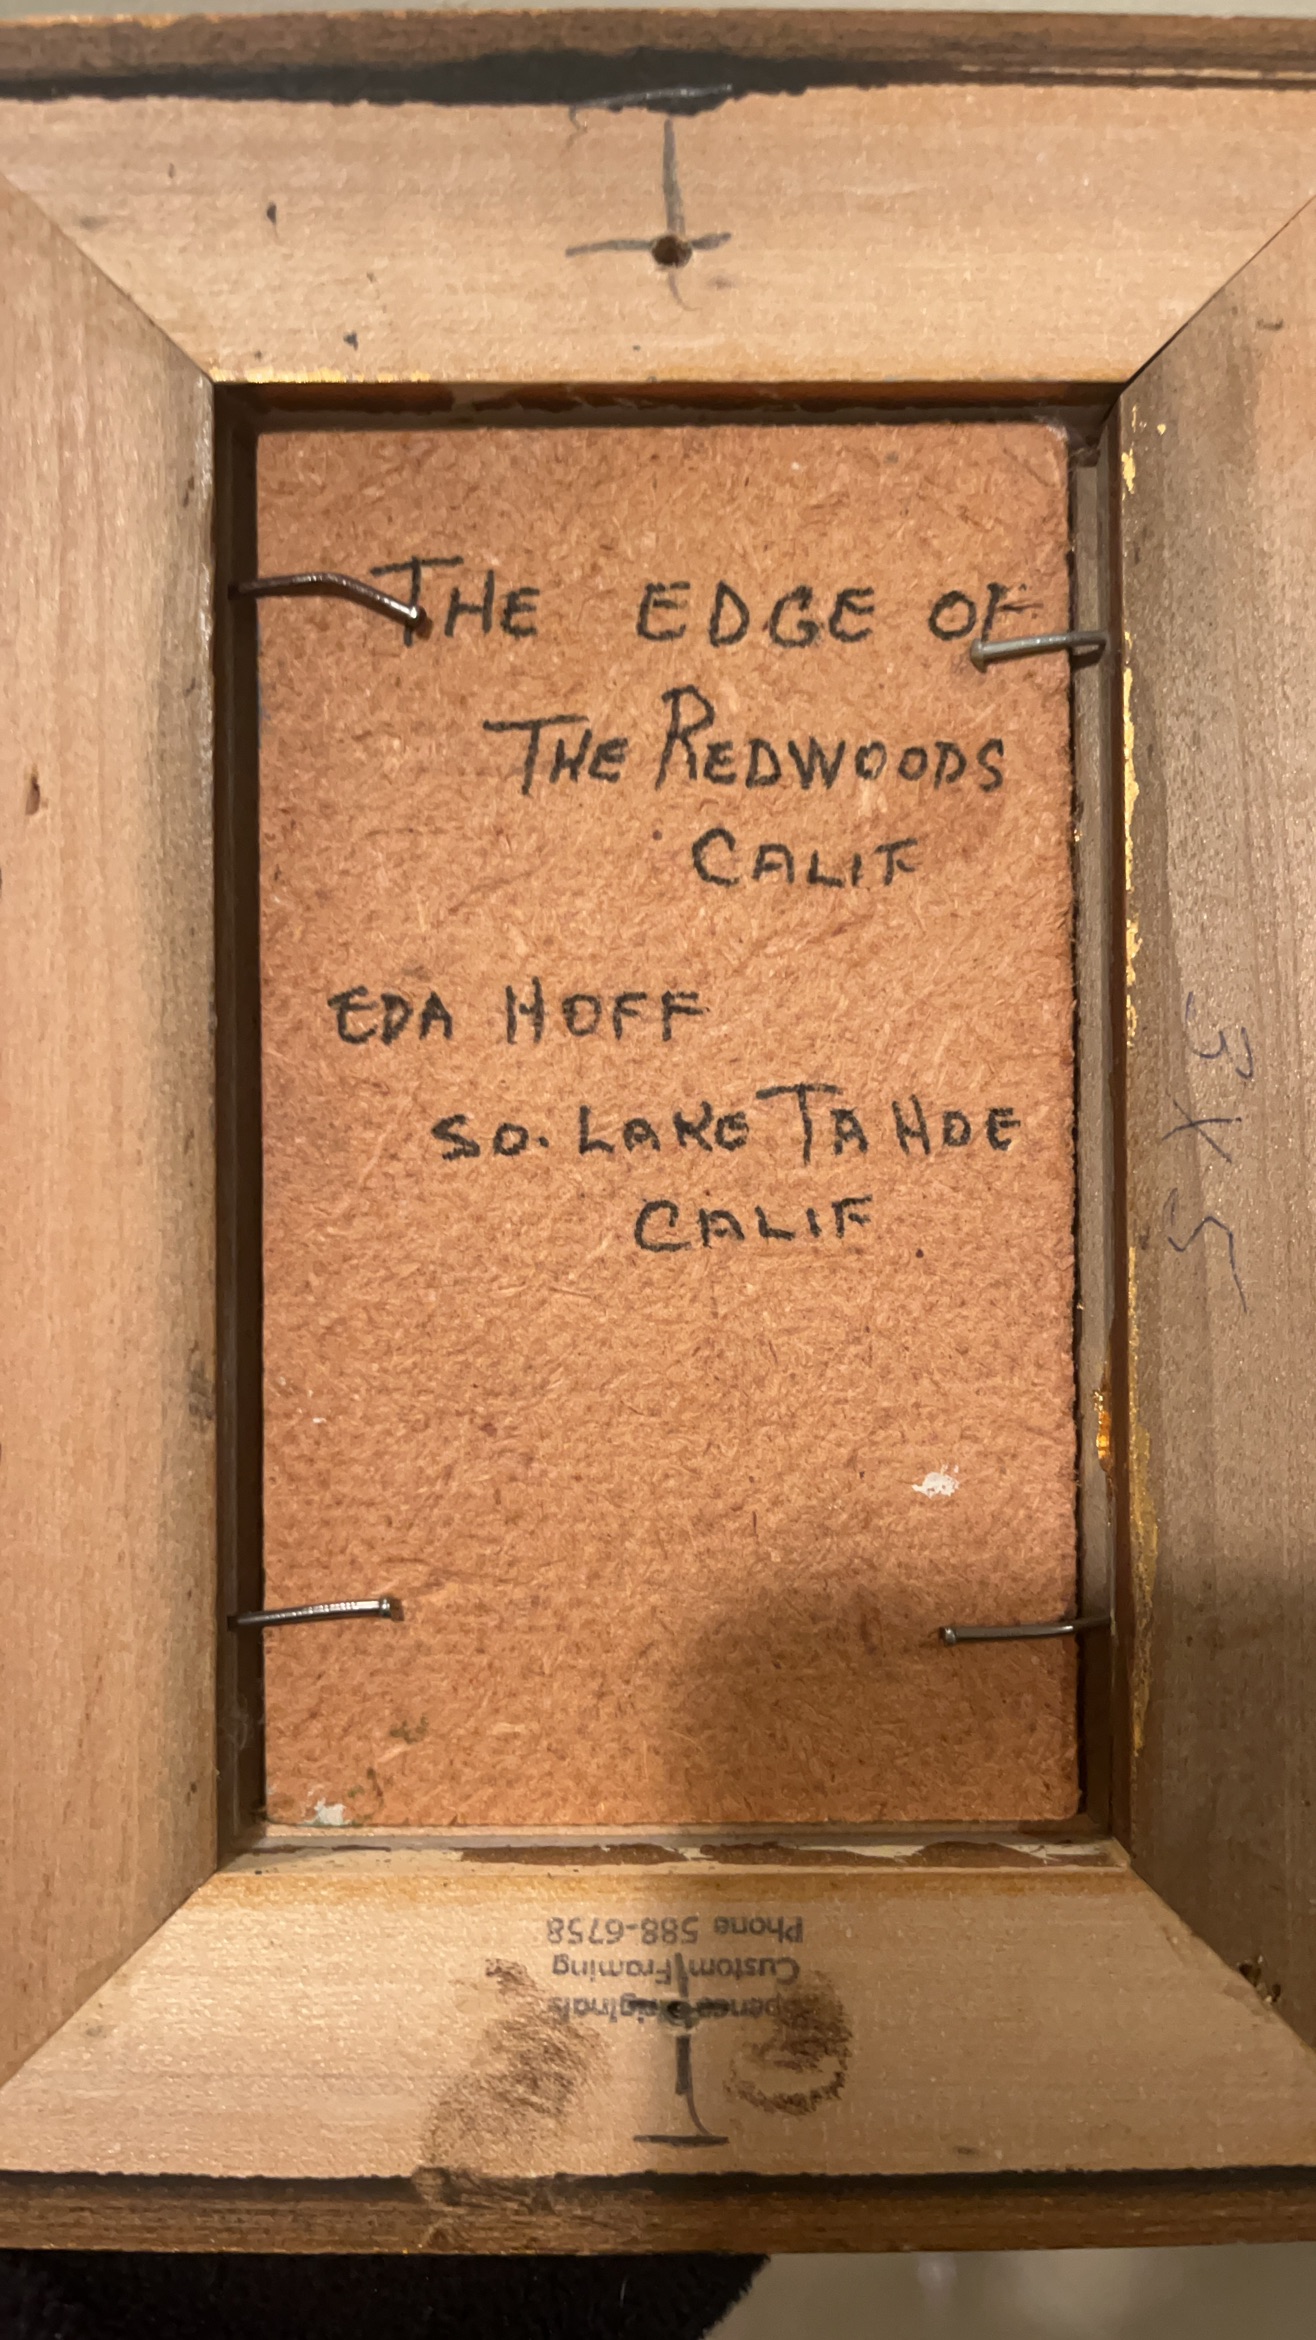 THE EDGE OF
THE REDWOODS
CALIF
EDA HOFF
SO. LAKE TAHOE
CALIF
3 X 5
Originals
Custom Framing
Phone 588-6758